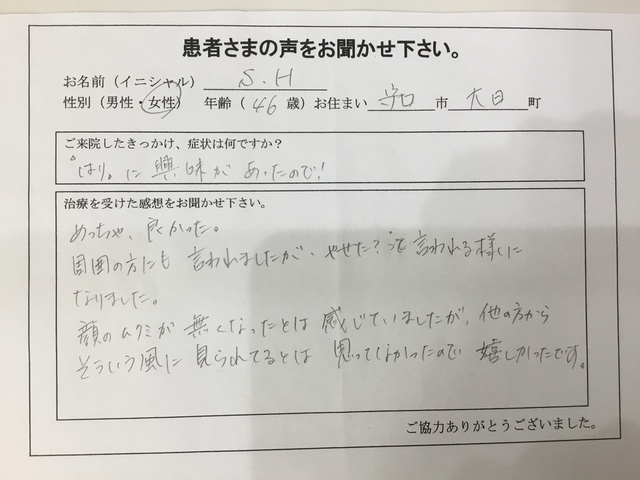 患者さまの声をお聞かせ下さい。
お名前(イニシャル) S.H
性別(男性・女性) 年齢(46歳)お住まい 守口 市 大日 町
ご来院したきっかけ、症状は何ですか?
"はり"に興味があったので!
治療を受けた感想をお聞かせ下さい。
めっちゃ、良かった。
周囲の方にも言われましたが、やせた?って言われる様に
なりました。
顔のムクミが無くなったとは感じていましたが、他の方から
そういう風に見られてるとは思ってなかったので嬉しかったです。
ご協力ありがとうございました。